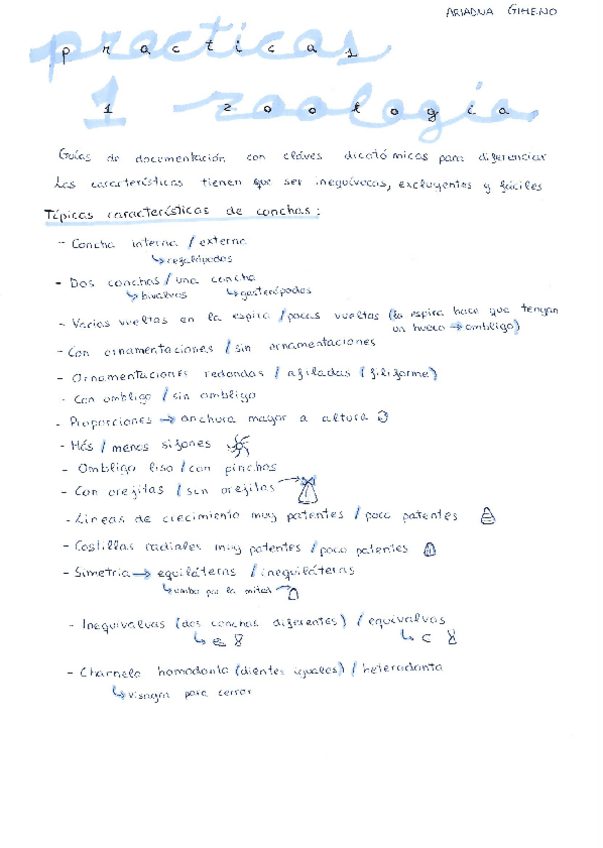 ARIADNA GIMENO
practicas
1 zoologia
Guías de documentación con claves dicotómicas para diferenciar
Las características tienen que ser inequívocas, excluyentes y fáciles
Típicas características de conchas:
- Concha interna / externa
↳ cefalópodos
- Dos conchas / una concha
↳ bivalvos ↳ gasterópodos
- Varias vueltas en la espira / pocas vueltas (la espira hace que tengan
un hueco → ombligo)
- Con ornamentaciones / sin ornamentaciones
- Ornamentaciones redondas / afiladas (filiforme)
- Con ombligo / sin ombligo
- Proporciones → anchura mayor a altura
- Más / menos sifones
- Ombligo liso / con pinchos
- Con orejitas / sin orejitas
- Lineas de crecimiento muy patentes / poco patentes
- Costillas radiales muy patentes / poco patentes
- Simetría → equiláteras / inequiláteras
↳ por la mitad
- Inequivalvas (dos conchas diferentes) / equivalvas
- Charnela homodonta (dientes iguales) / heterodonta
↳ visagra para cerrar